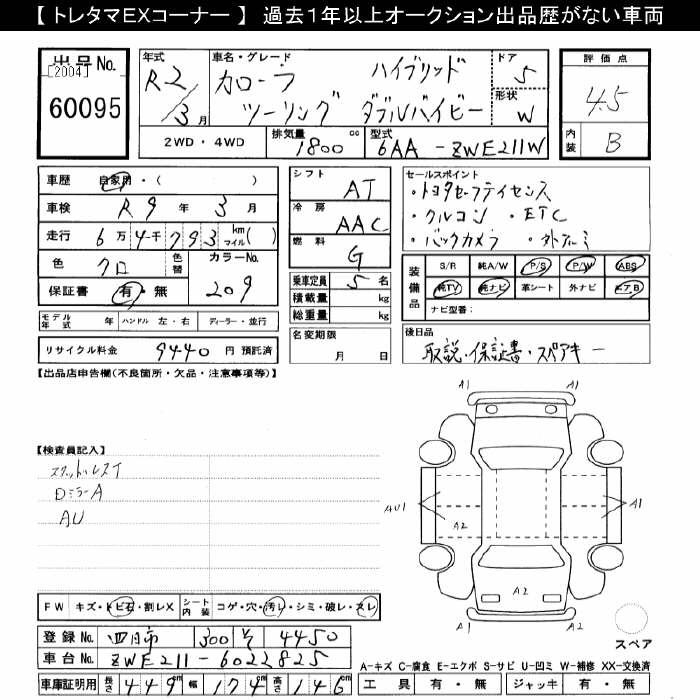 【 トレタマEXコーナー 】 過去１年以上オークション出品歴がない車両
出品No. [2004] 60095
年式 R2/3月
車名・グレード カローラ ハイブリッド
ツーリング ダブルバイビー
ドア 5
形状 W
評価点 4.5
内装 B
2WD・4WD 排気量 1800 cc 型式 6AA-ZWE211W
車歴 自家用・( )
車検 R9年3月
走行 6万4千793 km マイル( )
色 クロ 色替 カラーNo. 209
保証書 有・無
シフト AT
冷房 AAC
燃料 G
乗車定員 5名
積載量 kg
総重量 kg
名変期限 月 日
セールスポイント
・トヨタセーフティセンス
・クルコン ・ETC
・バックカメラ ・外アルミ
装備品 S/R 純A/W P/S P/W ABS
純TV 純ナビ 革シート 外ナビ エアB
ナビ型番：
モデル年式 年 ハンドル 左・右 ディーラー・並行
リサイクル料金 9440 円 預託済
後日品
取説・保証書・スペアキー
【出品店申告欄(不良箇所・欠品・注意事項等)】
【検査員記入】
DミラーA
AU
A1 A1
AU1 A1
A2
A2
A1 A2
スペア
FW キズ・トビ石・割レX シート内装 コゲ・穴・汚レ・シミ・破レ・スレ
登録No. 四日市 300 4450
車台No. ZWE211-6022825
車庫証明用 長さ 449 幅 174 高さ 146 cm
A-キズ C-腐食 E-エクボ S-サビ U-凹ミ W-補修 XX-交換済
工具 有・無 ジャッキ 有・無